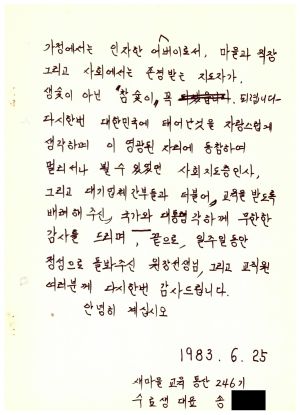 가정에서는 인자한 어버이로서, 마을과 직장
그리고 사회에서는 존경받는 지도자가,
생숯이 아닌 "참숯이" 꼭 되렵니다-
다시한번 대한민국에 태어난것을 자랑스럽게
생각하며 이 영광된 자리에 동참하여
멀리서나 뵐수 있었던 사회지도층인사,
그리고 대기업체간부들과 더불어, 교육을 받도록
배려해 주신, 국가와 대통령각하께 무한한
감사를 드리며, 끝으로, 일주일동안
정성으로 돌봐주신 원장선생님, 그리고 교직원
여러분께 다시한번 감사드립니다.
안녕히 계십시오
1983. 6. 25
새마을 교육 통산 246기
수료생 대표 송